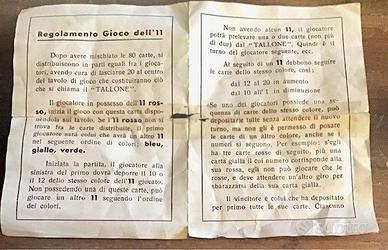 Regolamento Gioco dell'11
Dopo avere mischiato le 80 carte, si
distribuiscono in parti eguali fra i gioca-
tori, avendo cura di lasciarne 20 al centro
del tavolo di gioco che costituiranno ciò
che si chiama il "TALLONE".
Il giocatore in possesso dell'11 ros-
so, inizia il gioco con questa carta dispo-
nendoli sul tavolo. Se l'11 rosso, non si
trova fra le carte distribuite, il primo
giocatore sarà colui che avrà un altro 11
nel seguente ordine di color: bleu,
giallo, verde.
Iniziata la partita, il giocatore alla
sinistra del primo dovrà deporre il 10 o
il 12 dello stesso colore dell'11 giocato.
Non possedendo una di queste carte, può
giocare un altro 11 seguendo l'ordine
dei colori.
Non avendo alcun 11, il giocatore
potrà prelevare una o due carte (non più
di due) dal "TALLONE". Quindi è il
turno del giocatore seguente, ecc.
Al seguito di un 11 debbono seguire
le carte dello stesso colore, così:
dal 12 al 20 in aumento
dal 10 all'1 in diminuzione
Se uno dei giocatori possiede una se-
quenza di carte dello stesso colore, può
depositarle tutte senza attendere il nuovo
turno, ma non gli è permesso di posare
le carte di un altro colore, anche se i
numeri si seguono. Per esempio: s'egli
ha tre carte rosse di seguito, più una
carta gialla il cui numero corrisponde alla
sua rossa, egli non può giocare che le
rosse, e deve attendere un'altro giro per
sbarazzarsi della sua carta gialla.
Il vincitore è colui che ha depositato
per primo tutte le sue carte. Ciascuno